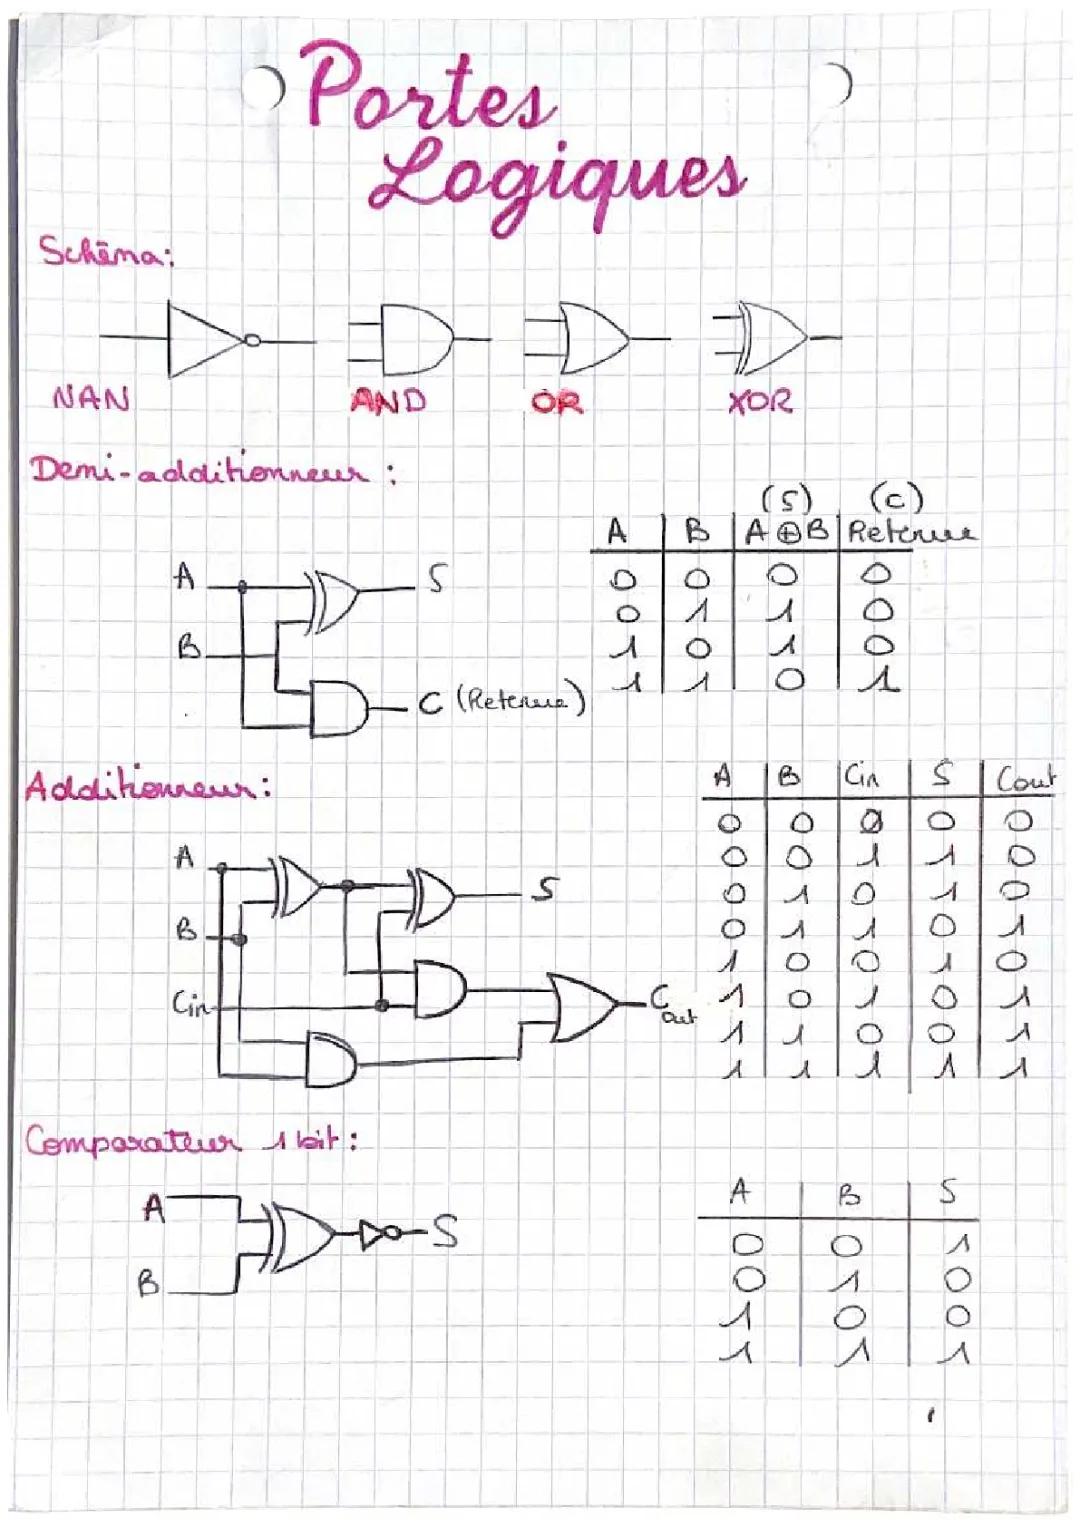 Portes
Logiques
Schéma:
NAN AND OR XOR
Demi-additionneur :
(S) (C)
A B A ⊕ B Retenue
0 0 0 0
0 1 1 0
1 0 1 0
1 1 0 1
A S
B
C (Retenue)
Additionneur:
A B Cin S Cout
0 0 0 0 0
0 0 1 1 0
0 1 0 1 0
0 1 1 0 1
1 0 0 1 0
1 0 1 0 1
1 1 0 0 1
1 1 1 1 1
A S
B
Cin Cout
Comparateur 1 bit :
A
B
S
A B S
0 0 1
0 1 0
1 0 0
1 1 1